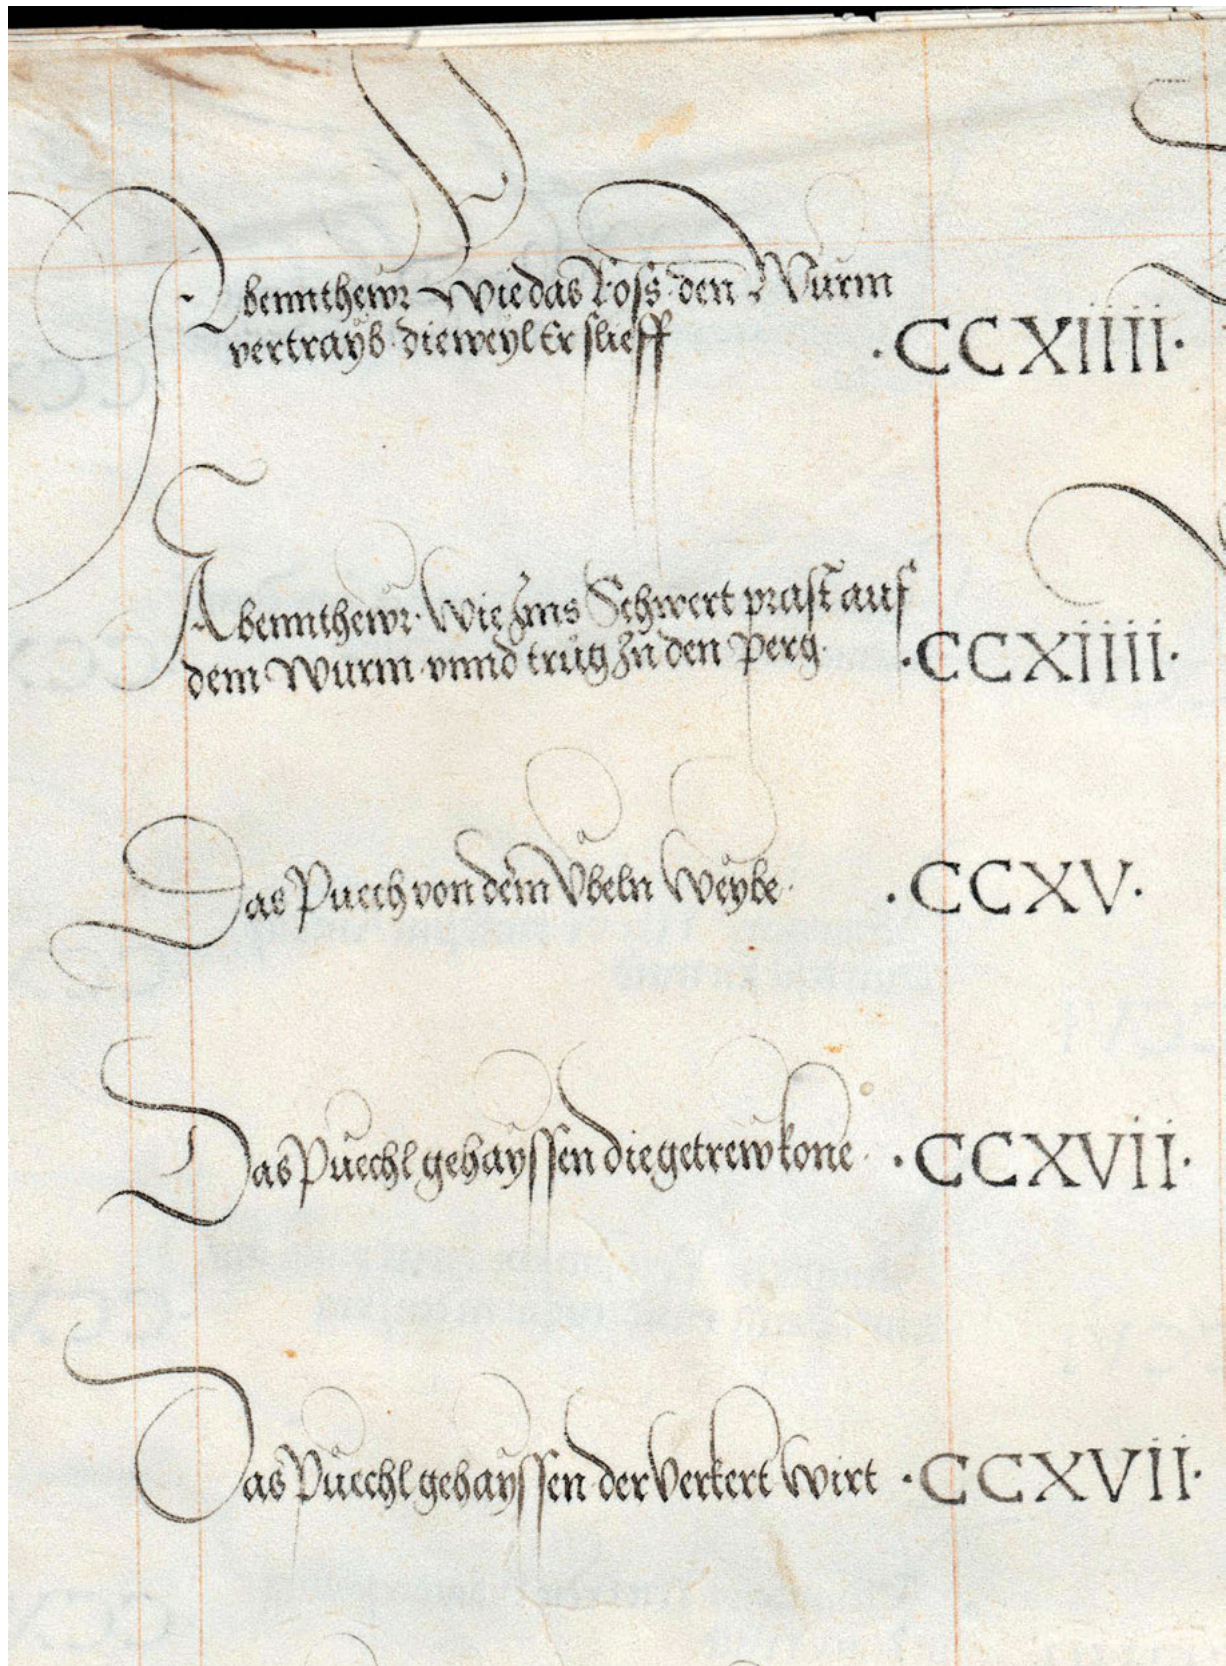 Abennthewr Wie das Ross den Wurm
vertrayb dieweyl Er slieff ·CCXIIII·
Abennthewr· Wie Jms Schwert prast auf
dem Wurm vnnd trůg Jn den perg· ·CCXIIII·
Das Puech von dem Vbeln Weybe· ·CCXV·
Das Půechl gehayssen die getrew kone· ·CCXVII·
Das Půechl gehayssen der Verkert Wirt ·CCXVII·